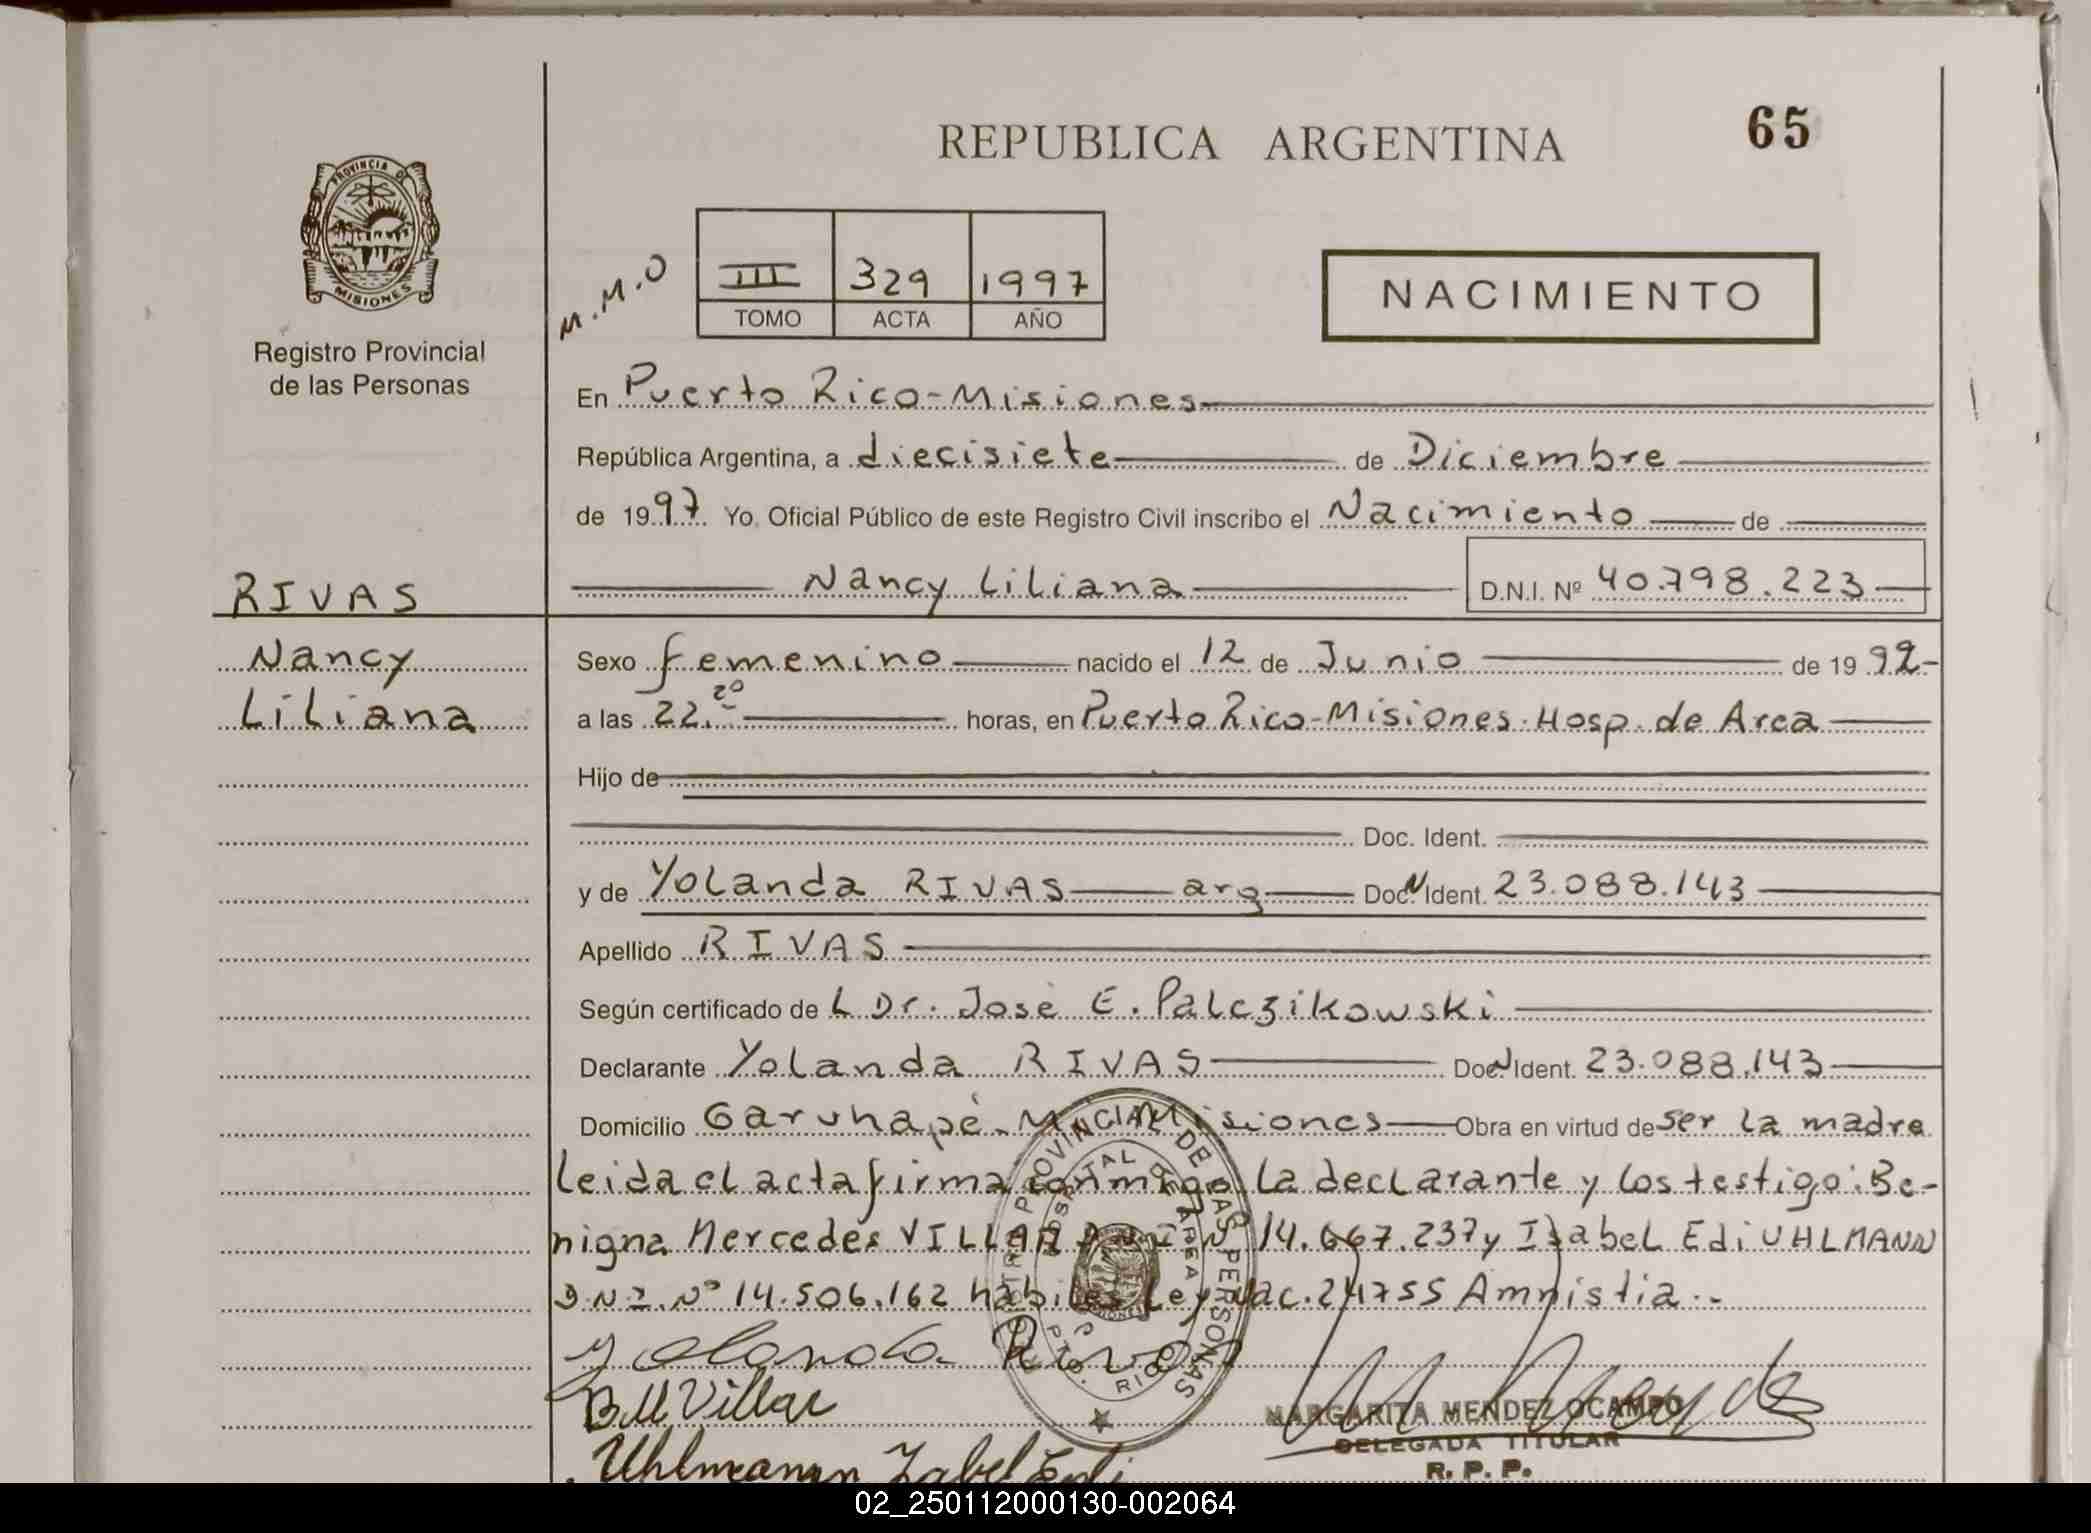 REPUBLICA ARGENTINA
65
PROVINCIA D
MISIONES
Registro Provincial
de las Personas
M.M.O
III 329 1997
TOMO ACTA AÑO
NACIMIENTO
En Puerto Rico-Misiones
República Argentina, a diecisiete de Diciembre
de 1997 Yo, Oficial Público de este Registro Civil inscribo el Nacimiento de
Nancy Liliana D.N.I. Nº 40.798.223
RIVAS
Nancy
Liliana
Sexo femenino nacido el 12 de Junio de 1992-
a las 22.20 horas, en Puerto Rico-Misiones.Hosp.de Area
Hijo de
Doc. Ident.
y de Yolanda RIVAS arg Doc. Ident. 23.088.143
Apellido RIVAS
Según certificado de L Dr. José E. Palczikowski
Declarante Yolanda RIVAS Doc. Ident. 23.088.143
Domicilio Garuhapé-Misiones Obra en virtud de ser la madre
leida el acta firma conmigo la declarante y los testigo:Be-
nigna Mercedes VILLAR D.N.I. Nº 14.667.237 y Isabel Edi UHLMANN
D.N.I. Nº 14.506.162 habiles Ley Nac.24755 Amnistia..
REGISTRO PROVINCIAL DE LAS PERSONAS
HOSPITAL DE AREA
PTO. RICO
Yolanda Rivas
B M Villar
MARGARITA MENDEZ OCAMPO
DELEGADA TITULAR
R. P. P.
Uhlmann Isabel Edi
02_250112000130-002064